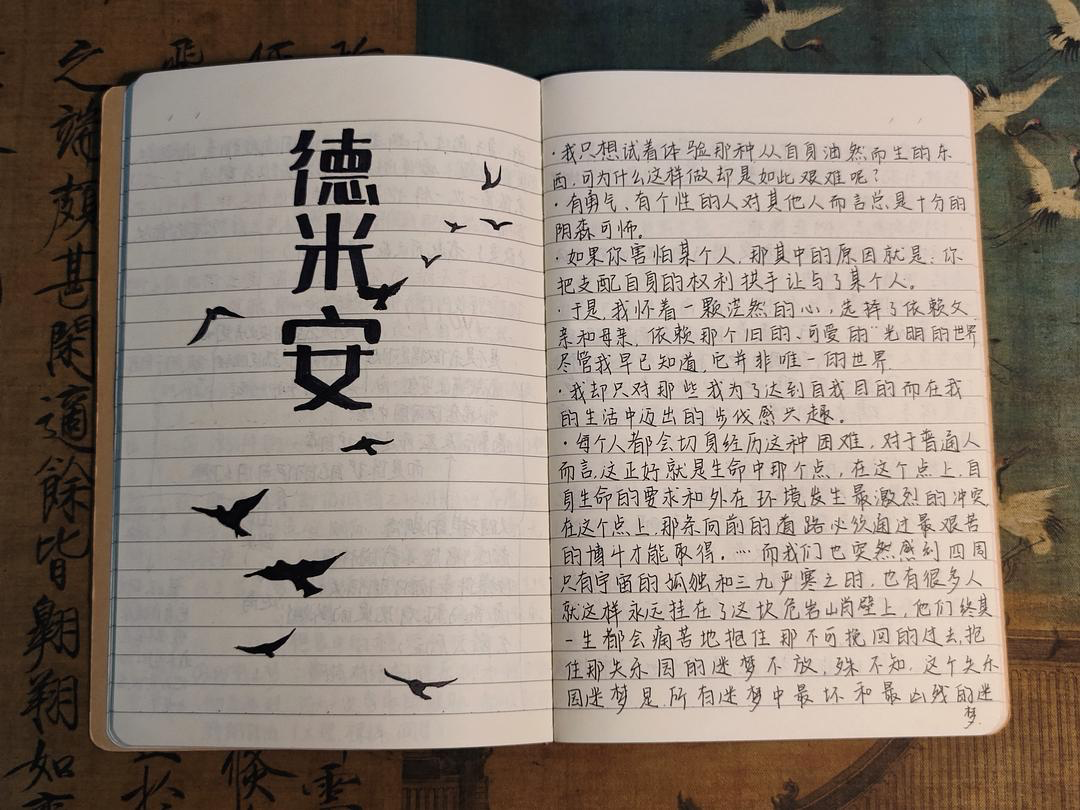 之端頗甚閑適餘皆翱翔如
德米安
·我只想试着体验那种从自身油然而生的东
西,可为什么这样做却是如此艰难呢?
·有勇气、有个性的人对其他人而言总是十分的
阴森可怖。
·如果你害怕某个人,那其中的原因就是:你
把支配自身的权利拱手让与了某个人。
·于是,我怀着一颗茫然的心,选择了依赖父
亲和母亲,依赖那个旧的、可爱的"光明的世界
尽管我早已知道,它并非唯一的世界.
·我却只对那些我为了达到自我目的而在我
的生活中迈出的步伐感兴趣。
·每个人都会切身经历这种困难,对于普通人
而言,这正好就是生命中那个点,在这个点上,自
身生命的要求和外在环境发生最激烈的冲突,
在这个点上,那条向前的道路必须通过最艰苦
的搏斗才能取得。…而我们也突然感到四周
只有宇宙的孤独和三九严寒之时,也有很多人
就这样永远挂在了这块危岩峭壁上,他们终其
一生都会痛苦地抱住那不可挽回的过去,抱
住那失乐园的迷梦不放,殊不知,这个失乐
园迷梦是所有迷梦中最坏和最凶残的迷
梦.